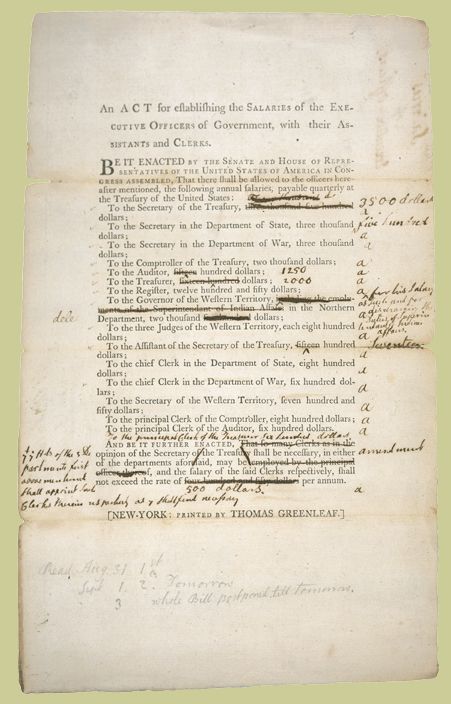 An ACT for eſtabliſhing the SALARIES of the EXE-
CUTIVE OFFICERS of Government, with their As-
SISTANTS and CLERKS.
BE IT ENACTED BY THE SENATE AND HOUSE OF REPRE-
SENTATIVES OF THE UNITED STATES OF AMERICA IN CON-
GRESS ASSEMBLED, That there ſhall be allowed to the officers here-
after mentioned, the following annual ſalaries, payable quarterly at
the Treaſury of the United States:
To the Secretary of the Treaſury, three thouſand five hundred 3500 dollars
dollars;
To the Secretary in the Department of State, three thouſand five hundred
dollars; a
To the Secretary in the Department of War, three thouſand a
dollars;
To the Comptroller of the Treaſury, two thouſand dollars; a
To the Auditor, fifteen hundred dollars; 1250 a
To the Treaſurer, ſixteen hundred dollars; 2000 a
To the Regiſter, twelve hundred and fifty dollars; a
To the Governor of the Weſtern Territory, including the emolu- for his Salary
ments of the Superintendent of Indian Affairs in the Northern
dele Department, two thouſand dollars;
To the three Judges of the Weſtern Territory, each eight hundred
dollars;
To the Aſſiſtant of the Secretary of the Treaſury, fifteen hundred Seventeen
dollars;
To the chief Clerk in the Department of State, eight hundred
dollars; a
To the chief Clerk in the Department of War, ſix hundred dol-
lars; a
To the Secretary of the Weſtern Territory, ſeven hundred and
fifty dollars; a
To the principal Clerk of the Comptroller, eight hundred dollars; a
To the principal Clerk of the Auditor, ſix hundred dollars. a
To the principal Clerk of the Treasurer Six hundred dollars
AND BE IT FURTHER ENACTED, That ſo many Clerks as in the
opinion of the Secretary of the Treaſury ſhall be neceſſary, in either amendment
of the departments aforeſaid, may be employed by the principal
officers thereof, and the salary of the ſaid Clerks reſpectively, ſhall
not exceed the rate of four hundred and fifty dollars per annum.
500 dollars. a
above mentioned
Shall appoint such
Clerks therein respectively as they shall find necessary
[NEW-YORK: PRINTED BY THOMAS GREENLEAF.]
Read Aug. 31 1st
Sept 1. 2. Tomorrow
3 whole Bill postponed till tomorrow.